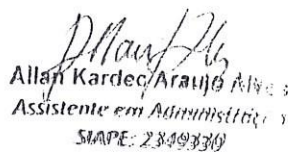 Allan Kardec Araujo Alves
Assistente em Administração
SIAPE: 2349330